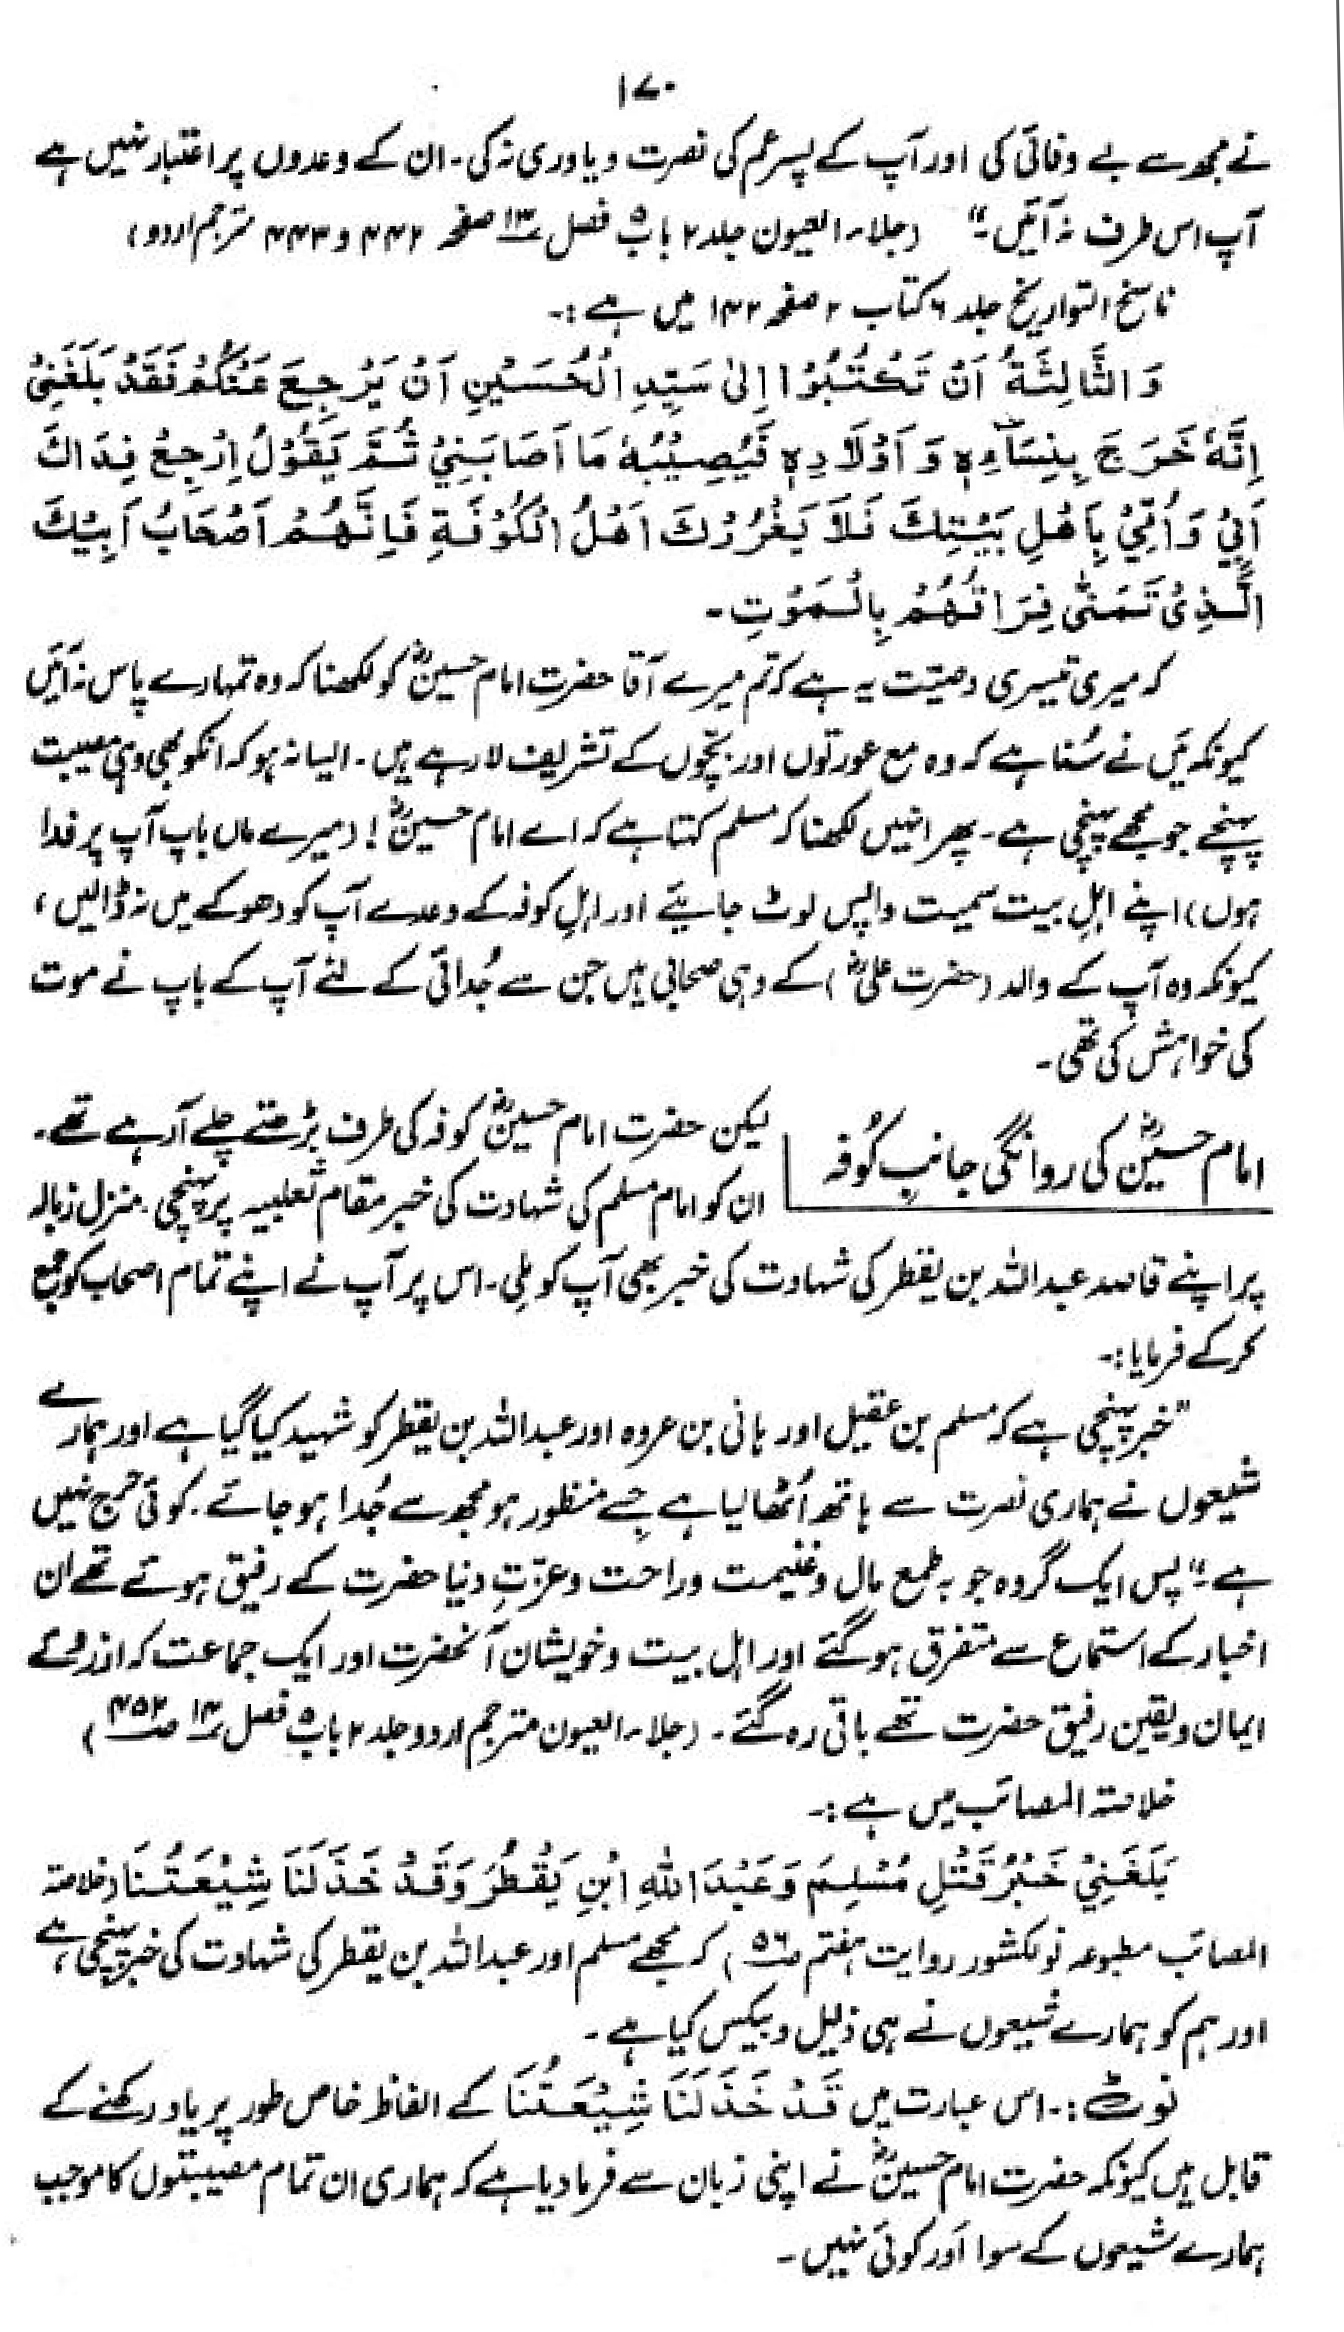 ۱۷۰
نے مجھ سے بے وفائی کی اور آپ کے پسرِ عم کی نصرت و یاوری نہ کی۔ ان کے وعدوں پر اعتبار نہیں ہے
آپ اس طرف نہ آئیں۔" (جلاء العیون جلد ۲ باب ۵ فصل ۱۳ صفحہ ۴۴۲ و ۴۴۳ مترجم اردو)
ناسخ التواریخ جلد ۶ کتاب ۲ صفحہ ۱۴۲ میں ہے:۔
وَالثَّالِثَةُ اَنْ تَكْتُبُوْا اِلٰى سَيِّدِ الْحُسَيْنِ اَنْ يَرْجِعَ عَنْكُمْ فَقَدْ بَلَغَنِيْ
اِنَّهٗ خَرَجَ بِنِسَآءِهٖ وَ اَوْلَادِهٖ فَيُصِيْبُهٗ مَا اَصَابَنِيْ ثُمَّ يَقُوْلُ اِرْجِعْ فِدَاكَ
اَبِيْ وَ اُمِّيْ بِاَهْلِ بَيْتِكَ فَلَا يَغْرُرْكَ اَهْلُ الْكُوْفَةِ فَاِنَّهُمْ اَصْحَابُ اَبِيْكَ
الَّذِيْ تَمَنّٰى فِرَاقَهُمْ بِالْمَوْتِ۔
کہ میری تیسری وصیّت یہ ہے کہ تم میرے آقا حضرت امام حسینؓ کو لکھنا کہ وہ تمہارے پاس نہ آئیں
کیونکہ مَیں نے سُنا ہے کہ وہ مع عورتوں اور بچّوں کے تشریف لا رہے ہیں۔ ایسا نہ ہو کہ انکو بھی وہی مصیبت
پہنچے جو مجھے پہنچی ہے۔ پھر انہیں لکھنا کہ مسلم کہتا ہے کہ اے امام حسینؓ! (میرے ماں باپ آپ پر فدا
ہوں) اپنے اہلِ بیت سمیت واپس لوٹ جایئے اور اہلِ کوفہ کے وعدے آپ کو دھوکے میں نہ ڈالیں،
کیونکہ وہ آپ کے والد (حضرت علیؓ) کے وہی صحابی ہیں جن سے جُدائی کے لئے آپ کے باپ نے موت
کی خواہش کی تھی۔
امام حسینؓ کی روانگی جانبِ کُوفہ
لیکن حضرت امام حسینؓ کوفہ کی طرف بڑھتے چلے آ رہے تھے۔
ان کو امام مسلم کی شہادت کی خبر مقام ثعلبیہ پر پہنچی۔ منزلِ زبالہ
پر اپنے قاصد عبداللہ بن یقطر کی شہادت کی خبر بھی آپ کو ملی۔ اس پر آپ نے اپنے تمام اصحاب کو جمع
کر کے فرمایا:۔
"خبر پہنچی ہے کہ مسلم بن عقیل اور ہانی بن عروہ اور عبداللہ بن یقطر کو شہید کیا گیا ہے اور ہمارے
شیعوں نے ہماری نصرت سے ہاتھ اُٹھا لیا ہے جسے منظور ہو مجھ سے جُدا ہو جائے۔ کوئی حرج نہیں
ہے۔" پس ایک گروہ جو بہ طمع مال و غنیمت و راحت و عزّتِ دنیا حضرت کے رفیق ہوئے تھے ان
اخبار کے استماع سے متفرق ہو گئے اور اہل بیت و خویشان آنحضرت اور ایک جماعت کہ ازروئے
ایمان و یقین رفیق حضرت تھے باقی رہ گئے۔ (جلاء العیون مترجم اردو جلد ۲ باب ۵ فصل ۱۴ صـ ۴۵۲)
خلاصۃ المصائب میں ہے:۔
بَلَغَنِيْ خَبْرُ قَتْلِ مُسْلِمَ وَ عَبْدَ اللّٰهِ ابْنِ يَقْطُرَ وَ قَدْ خَذَلَنَا شِيْعَتُنَا (خلاصۃ
المصائب مطبوعہ نولکشور روایت ہفتم صـ ۵۶) کہ مجھے مسلم اور عبداللہ بن یقطر کی شہادت کی خبر پہنچی ہے،
اور ہم کو ہمارے شیعوں نے ہی ذلیل و بیکس کیا ہے۔
نوٹ:۔ اس عبارت میں قَدْ خَذَلَنَا شِيْعَتُنَا کے الفاظ خاص طور پر یاد رکھنے کے
قابل ہیں کیونکہ حضرت امام حسینؓ نے اپنی زبان سے فرما دیا ہے کہ ہماری ان تمام مصیبتوں کا موجب
ہمارے شیعوں کے سوا اَور کوئی نہیں۔